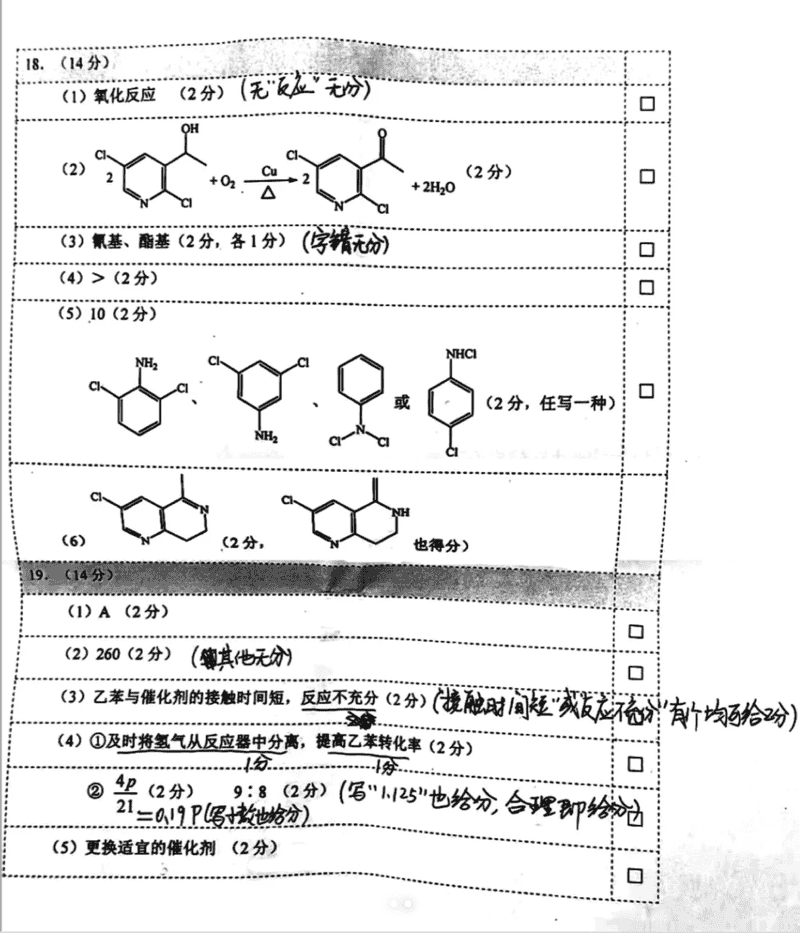 18. (14分)
(1) 氧化反应 (2分) (无“反应”无分)
(2) 2 Cl OH N Cl + O₂ Cu △ 2 Cl O N Cl + 2H₂O (2分)
(3) 氰基、酯基(2分,各1分) (字错无分)
(4) > (2分)
(5) 10(2分)
Cl NH₂ Cl 、 Cl Cl NH₂ 、 N Cl Cl 或 NHCl Cl (2分,任写一种)
(6) Cl N N (2分, Cl N NH 也得分)
19. (14分)
(1) A (2分)
(2) 260(2分) (其他无分)
(3) 乙苯与催化剂的接触时间短,反应不充分(2分) (“接触时间短”或“反应不充分”有1个均可给2分)
(4) ①及时将氢气从反应器中分离,提高乙苯转化率(2分)
1分 1分
② 4p/21 (2分) 9:8 (2分) (写“1.125”也给分,合理即给分)
=0.19P(写小数也给分)
(5) 更换适宜的催化剂 (2分)